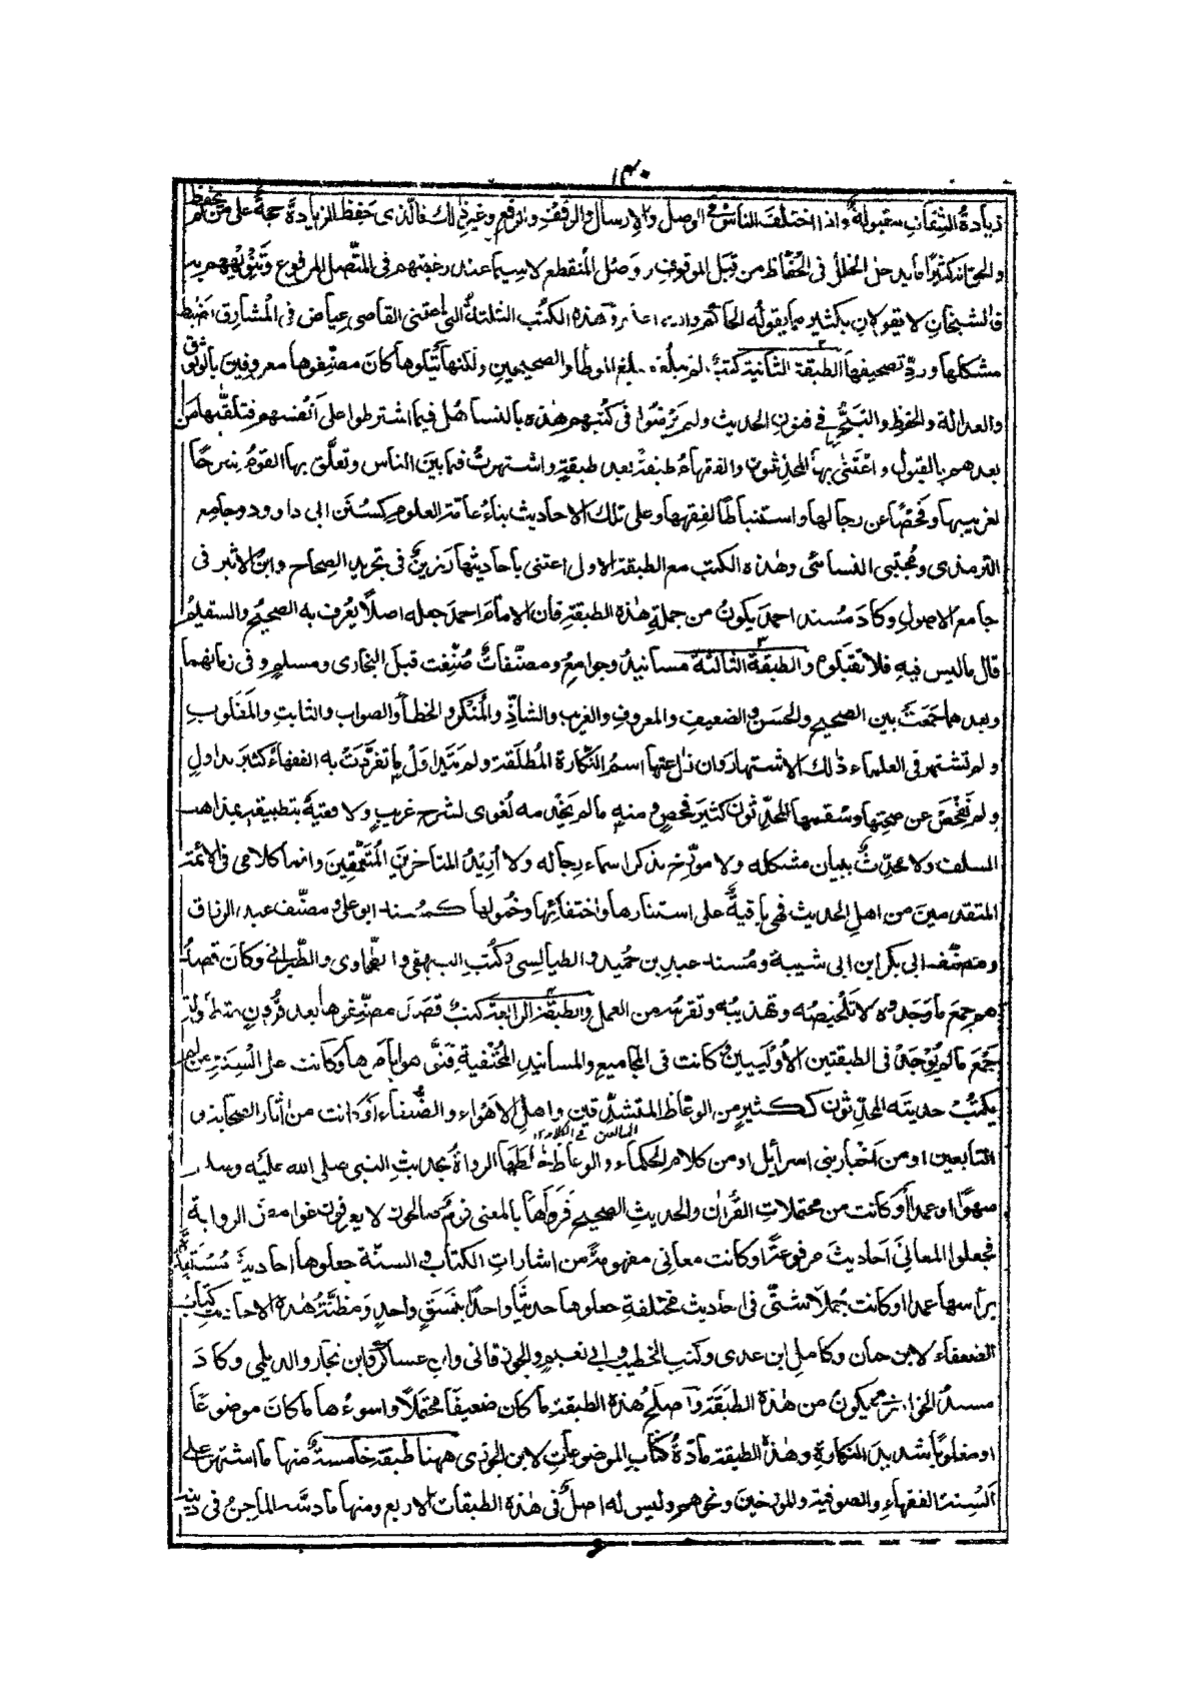 ١٣٠
زيادةُ الثِقاتِ مقبولةٌ واذا اختلف الناسُ في الوصل والارسال والوقف والرفع وغير ذلك فالذى حَفِظَ الزيادةَ حجةٌ على مَنْ لم يحفظ
والحق انه كثيرًا ما يدخل الخلل فى الحُفّاظ من قِبَل الموقوف ووصل المنقطع لا سيما عند رغبتهم فى المتّصل المرفوع وتنويههم به
فالشيخان لا يقولان بكثير مما يقوله الحاكم والله اعلم وهذه الكتُب الثلثةُ التى اعتنى القاضى عياض فى المشارق بضبط
مشكلها وردّ تصحيفها الطبقة الثانية كتبٌ لم يبلغ مبلغ الموطأ والصحيحين ولكنها تتلوها كان مصنّفوها معروفين بالوثوق
والعدالة والحفظ والتبحُّر في فنون الحديث ولم يَرْضَوْا فى كتبهم هذه بالتساهل فيما اشترطوا على انفسهم فتلقّٰيها مَن
بعدهم بالقبول واعتنى بها المحدّثون والفقهاءُ طبقةً بعد طبقةٍ واشتهرتْ فيما بين الناس وتعلّق بها القومُ شرحًا
لغريبها وفحصًا عن رجالها واستنباطًا لفقهها وعلى تلك الاحاديث بناءُ عامّة العلوم كسُنَن ابى داوود وجامع
الترمذى ومُجتبى النسائى وهٰذه الكتب مع الطبقة الاولى اعتنى باحاديثها رَزينٌ فى تجريد الصِحاح وابن الاثير فى
جامع الاصولِ وكاد مُسند احمدَ يكونُ من جملةِ هٰذه الطبقةِ فان الامام احمدَ جعله اصلًا يُعرف به الصحيحُ والسقيمُ
قال ما ليس فيهِ فلا تقبلوه والطبقة الثالثة مسانيدُ وجوامعُ ومصنّفاتٌ صُنّفت قبل البخارى ومسلمٍ وفى زمانهما
وبعدهما جَمَعَتْ بين الصحيح والحَسَن والضعيف والمعروفِ والغريب والشاذِّ والمُنْكر والخطأ والصواب والثابتِ والمقلوبِ
ولم تشتهر فى العلماء ذٰلك الاشتهار وان زال عنها اسمُ النَّكارة المُطلَقة ولم يَتداوَلْ ما تفرَّدَتْ به الفقهاءُ كثيرَ تداولٍ
ولم يَفْحَصْ عن صحتها وسُقمها المحدّثون كثيرَ فحصٍ ومنه ما لم يَخْدمه لُغوى لشرح غريبٍ ولا فقيهٌ بتطبيقه بمذاهب
السلف ولا محدّثٌ ببيان مشكله ولا مؤرّخ بذكر اسماء رجاله ولا أُريدُ المتأخرينَ المُتعمّقِينَ وانما كلامى فى الائمة
المتقدمينَ من اهلِ الحديث فهى باقيةٌ على استتارها واختفائها وخُمولها كمسند ابو على ومصنّف عبد الرزاق
ومصنّف ابى بكر ابن ابى شيبة ومُسند عبدِ بن حُميد والطيالسِى وكتُب البيهقى والطحاوى والطبرانى وكان قصدُ
هم جمعَ ما وَجَدُوه لا تلخيصُه وتهذيبُه وتقريبُه من العمل والطبقة الرابعة كتبٌ قصَدَ مصنّفوها بعد قُرونٍ متطاولةٍ
جَمْعَ ما لم يُوجَدْ فى الطبقتين الأُولَيَيْن كانت فى المجاميع والمسانيد المُخْتفية فنوّهوا بامرها وكانت على السنة من لم
يكتُبْ حديثَه المحدّثون ككثيرٍ من الوعّاظ المتشدّقين واهل الاهواء والضُّعفاء او كانت من اٰثار الصحابة و
التابعين او من اخبار بنى اسرائيل او من كلام الحكماء والوعاظ خلطها الرواةُ بحديثِ النبى صلى الله عليه وسلم
سهوًا او عمدًا او كانت من محتملاتِ القُرآن والحديثِ الصحيح فَرَوَاها بالمعنى قومٌ صالحون لا يعرفون غوامضَ الرواية
فجعلوا المعانِىَ احاديثَ مرفوعةً او كانت معانى مفهومةً من اشاراتِ الكتاب والسنّة جعلوها احاديثَ مُستقلّةً
برأسها عمدا او كانت جُملًا شتّى فى احاديث مختلفةٍ جعلوها حديثًا واحدًا بنَسَقٍ واحدٍ ومَظِنّةُ هٰذه الاحاديث كتابُ
الضعفاء لابن حبان وكامل ابن عدى وكتب الخطيب وابى نعيم والجوزقانى وابن عساكر وابن نجار والديلمى وكاد
مسندُ الخوارزمى يكونُ من هٰذه الطبَقَة واصلحُ هٰذه الطبقة ما كان ضعيفًا محتملًا واسوءُها ما كان موضوعًا
او مقلوبًا شديدَ النكارةِ وهٰذه الطبقة مادّةُ كتاب الموضوعات لابن الجوزى ههنا طبقة خامسةٌ منها ما اشتهر على
السِنَة الفقهاءِ والصوفية والمؤرخينَ ونحوهم وليس له اصلٌ فى هٰذه الطبقات الاربع ومنها ما دسّه الماجنُ فى دينه